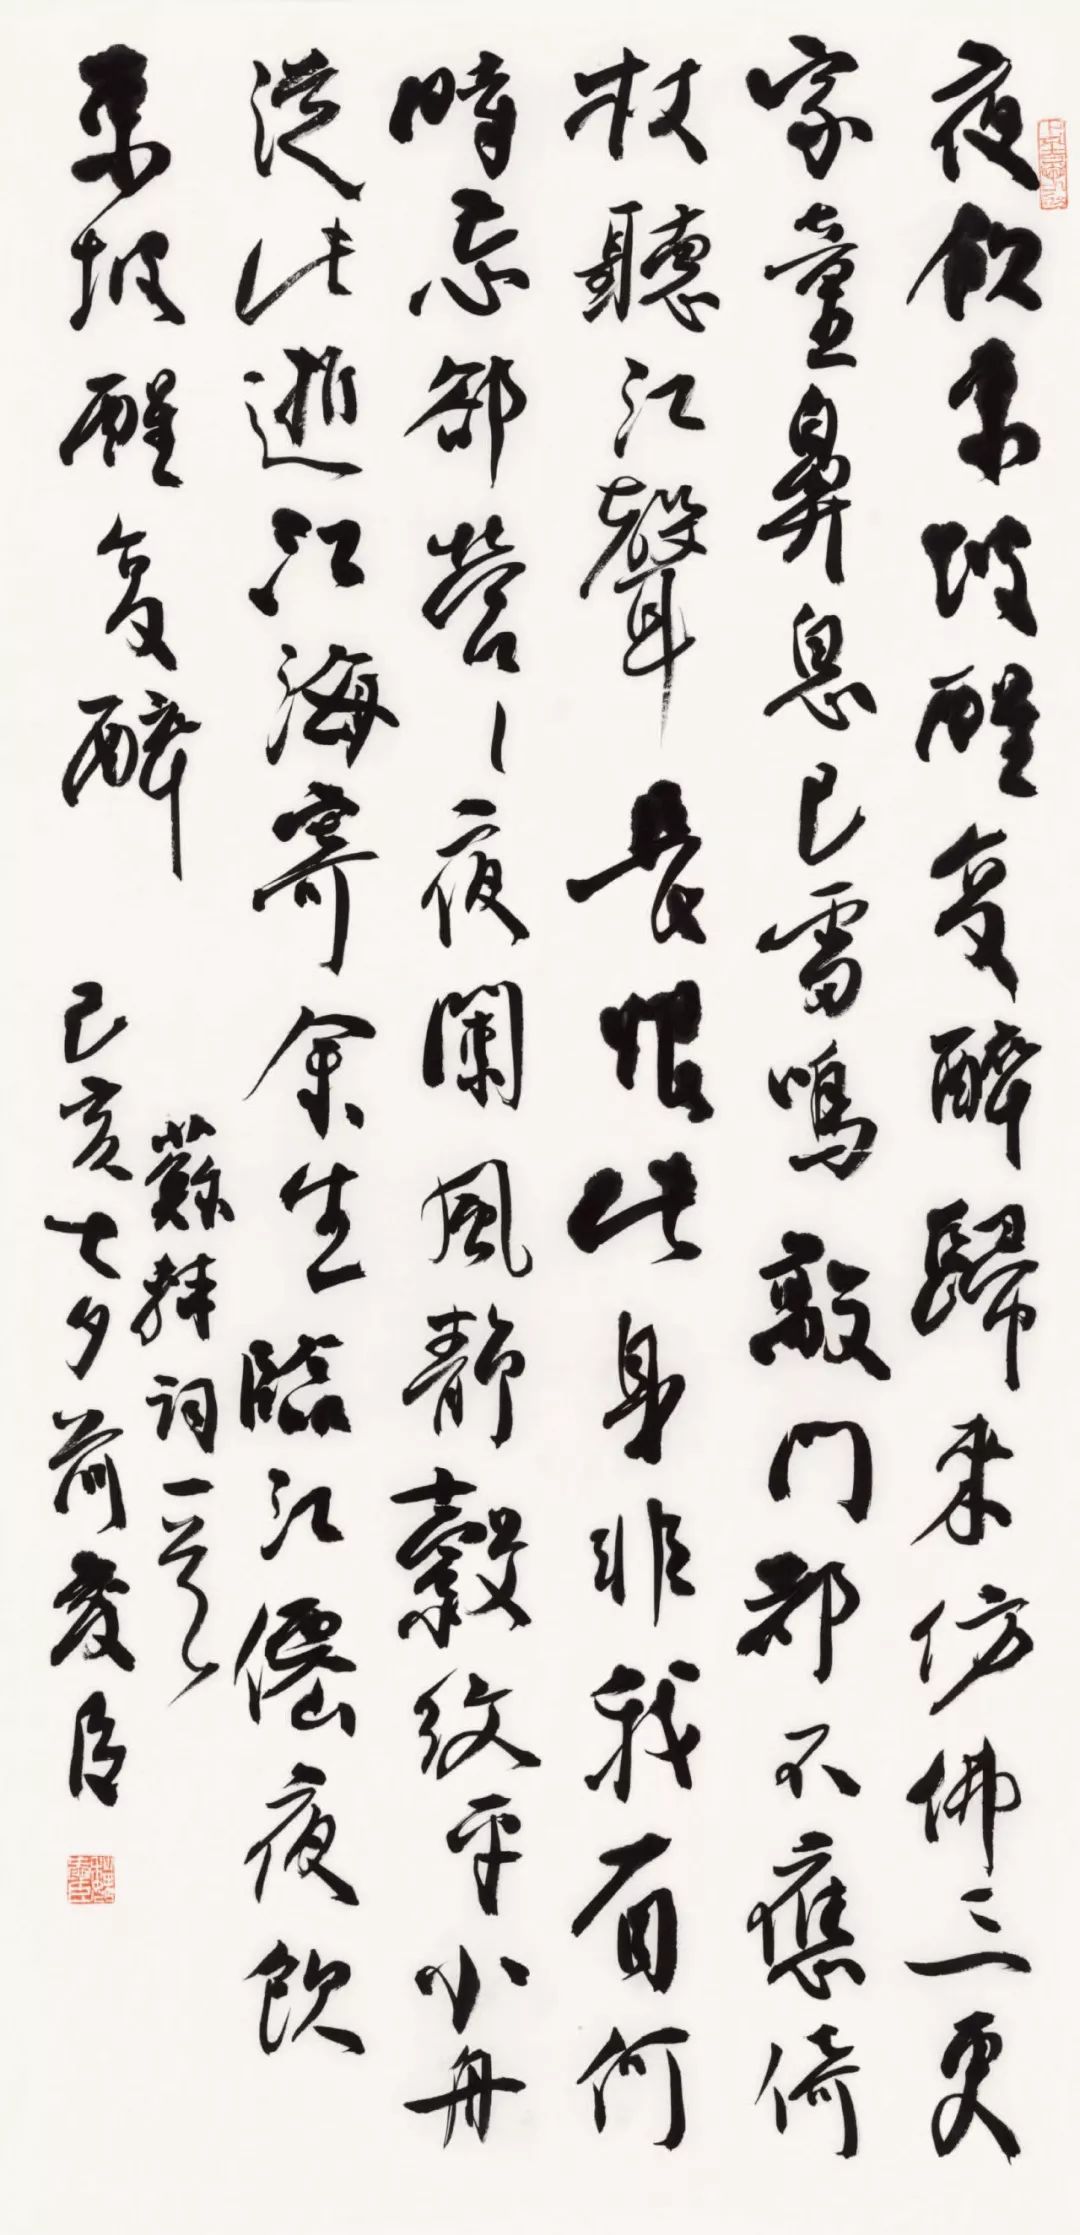 夜飲東坡醒復醉歸來仿佛三更
家童鼻息已雷鳴敲門都不應倚
杖聽江聲長恨此身非我有何
時忘卻營〻夜闌風靜縠紋平小舟
從此逝江海寄余生臨江僊夜飲
東坡醒復醉
蘇軾詞一首
己亥七夕前